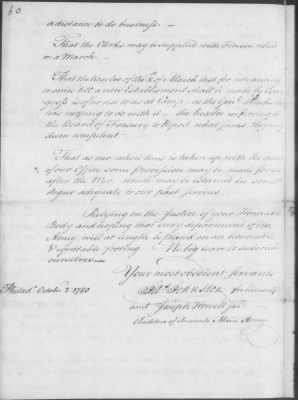 60
a distance to do business. —
That the Clerks may be supplied with Horses when
on a March. —
That the resolve of the of March last for advancing
monies till a new Establishment shall be made by Con-
gress is of no use to us at Camp. as the
has nothing to do with it. the resolve referring to
the Board of Treasury to Report what
competent.
That as our whole time is taken up with the duties
of our Office some Provision may be made for us
after the War. which may be esteemed in some
degree adequate to our past Services.
Relying on the Justice of your Honorable
Body and hoping that every department of the
Army will at length be placed on an Honorable
& Equitable footing We beg leave to subscribe
ourselves —
Your most obedient Servants
Philada. October 2 1780.
Johnston for himself
and Joseph Howell junr.
Auditors of Accounts Main Army